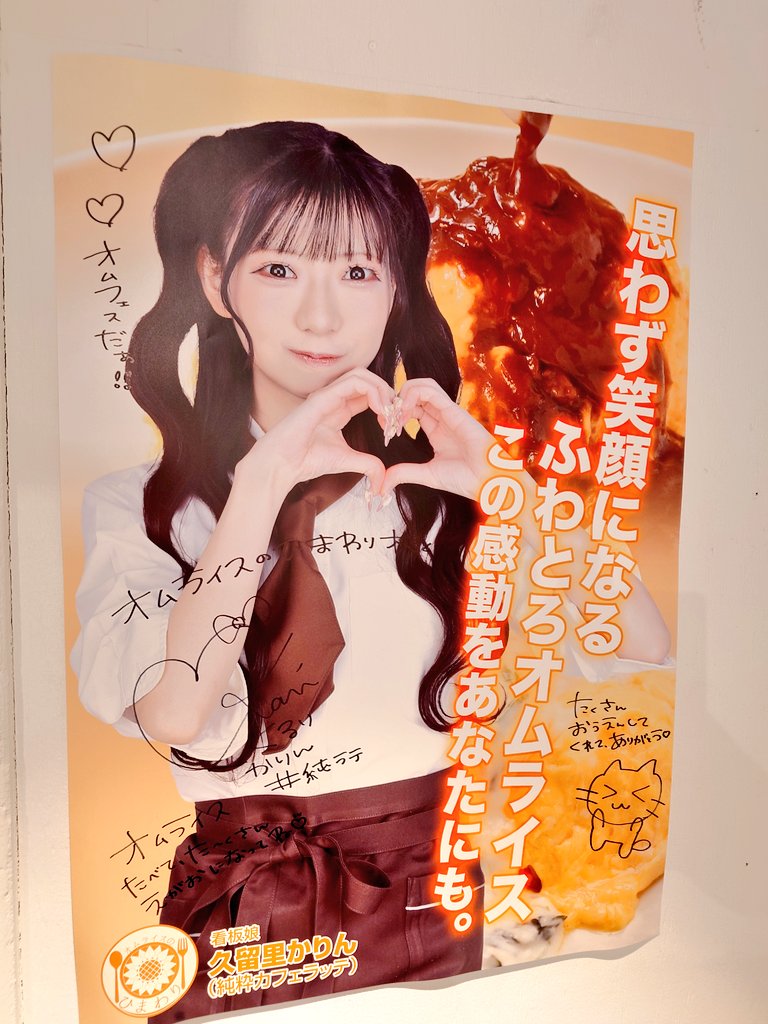 思わず笑顔になる
ふわとろオムライス
この感動をあなたにも。
オムフェス
だぁ!!
オムライスのひまわりさん
くるり
かりん
#純ラテ
たくさん
おうえんして
くれて、ありがとう
オムライス
たべていたくさん
えがおになって
看板娘
久留里かりん
(純粋カフェラッテ)
オムライスの
ひまわり